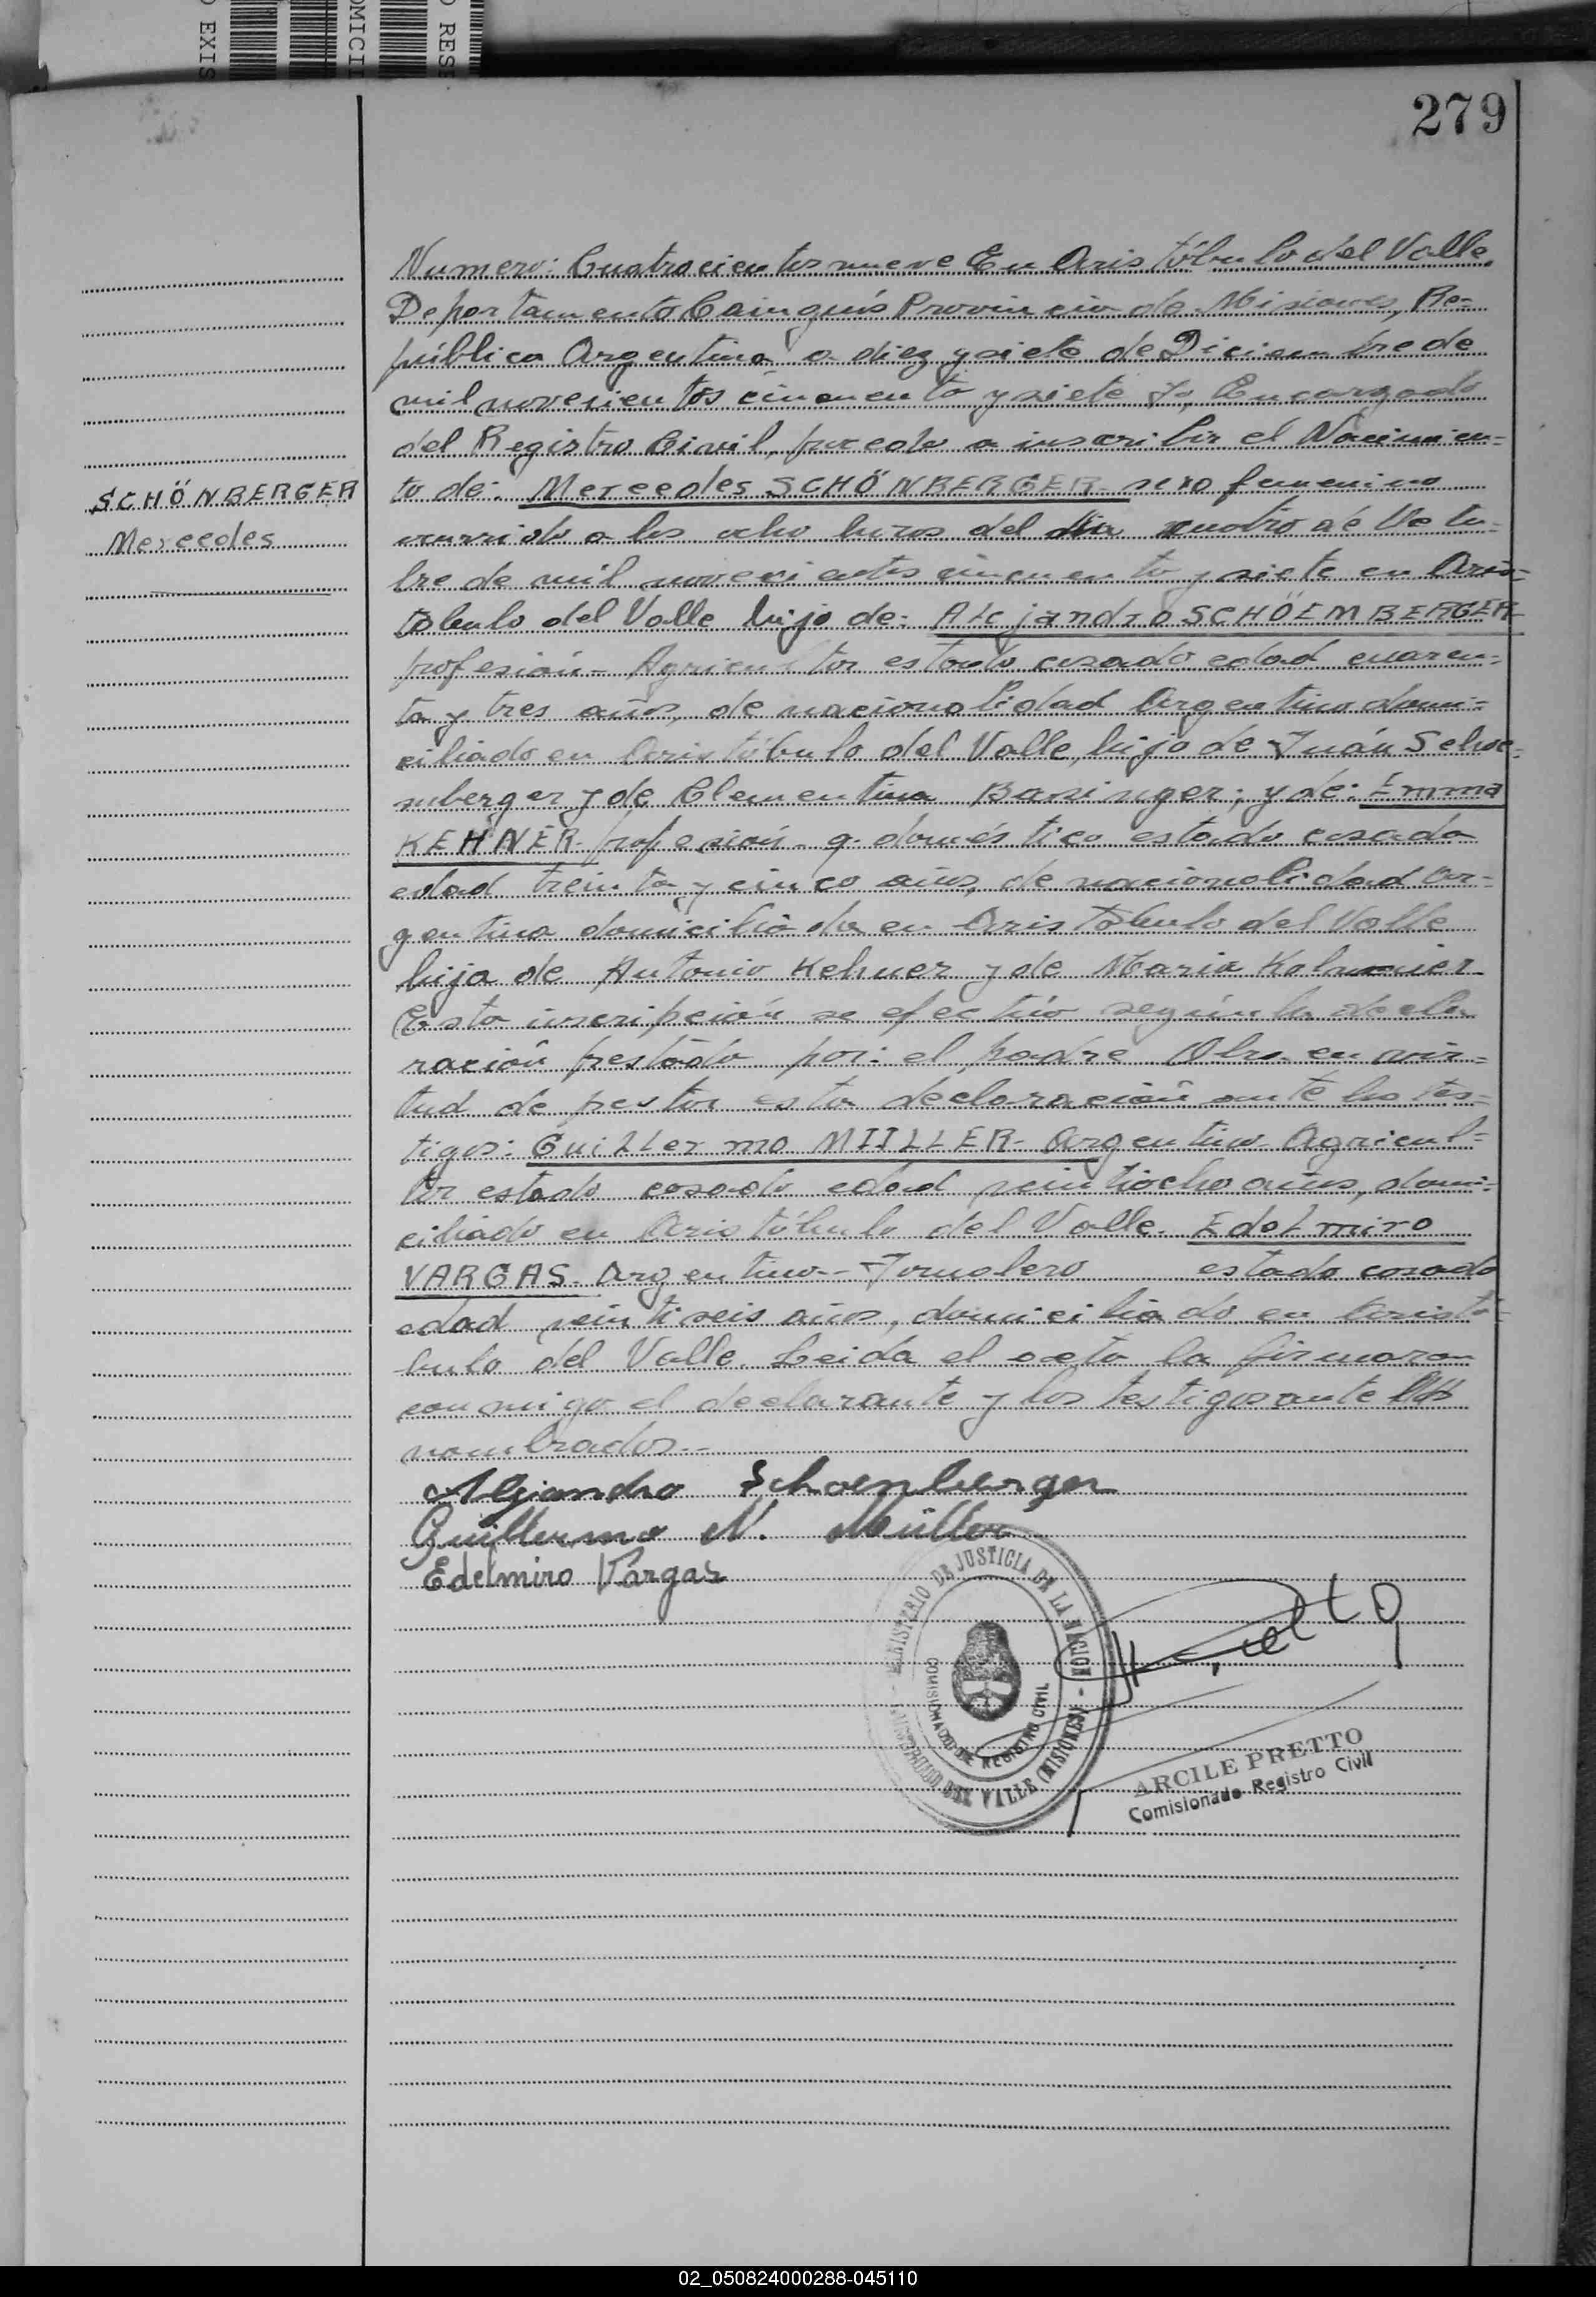 O EXIS
OMICIL
O RES
279
SCHÖNBERGER
Mercedes
Numero: Cuatrocientos nueve En Aristóbulo del Valle,
Departamento Cainguás Provincia de Misiones, Re-
pública Argentina a diez y siete de Diciembre de
mil novecientos cincuenta y siete Yo, Encargado
del Registro Civil, procedo a inscribir el Nacimien-
to de: Mercedes SCHÖNBERGER- sexo femenino
ocurrido a las ocho horas del dia cuatro de Octu-
bre de mil novecientos cincuenta y siete en Aris-
tobulo del Valle hijo de: Alejandro SCHÖEMBERGER
profesión- Agricultor estado casado edad cuaren-
ta y tres años, de nacionalidad Argentino domi-
ciliado en Aristóbulo del Valle, hijo de Juán Schoe-
mberger y de Clementina Basinger; y de: Emma
KEHNER- profesión- q. doméstico estado casada
edad treinta y cinco años, de nacionalidad Ar-
gentina domiciliada en Aristobulo del Valle
hija de Antonio Kehner y de Maria
Esta inscripción se efectúo según la decla
ración prestada por: el padre en vir-
tud de prestar esta declaración ante los tes-
tigos: Guillermo MIILLER- Argentino- Agricul-
tor estado casado edad veintiocho años, domi-
ciliado en Aristóbulo del Valle. Edelmiro
VARGAS- Argentino-- Jornalero estado casado
edad veintiseis años, domiciliado en Aristó-
bulo del Valle. Leida el acta la firmaron
conmigo el declarante y los testigos ante
nombrados.--
Alejandro Schoenberger
Guillermo N. Müller
Edelmiro Vargas
MINISTERIO DE JUSTICIA DE LA NACION
COMISIONADO DE REGISTRO CIVIL
ARISTOBULO DEL VALLE (MISIONES)
ARCILE PRETTO
Comisionado Registro Civil
02_050824000288-045110